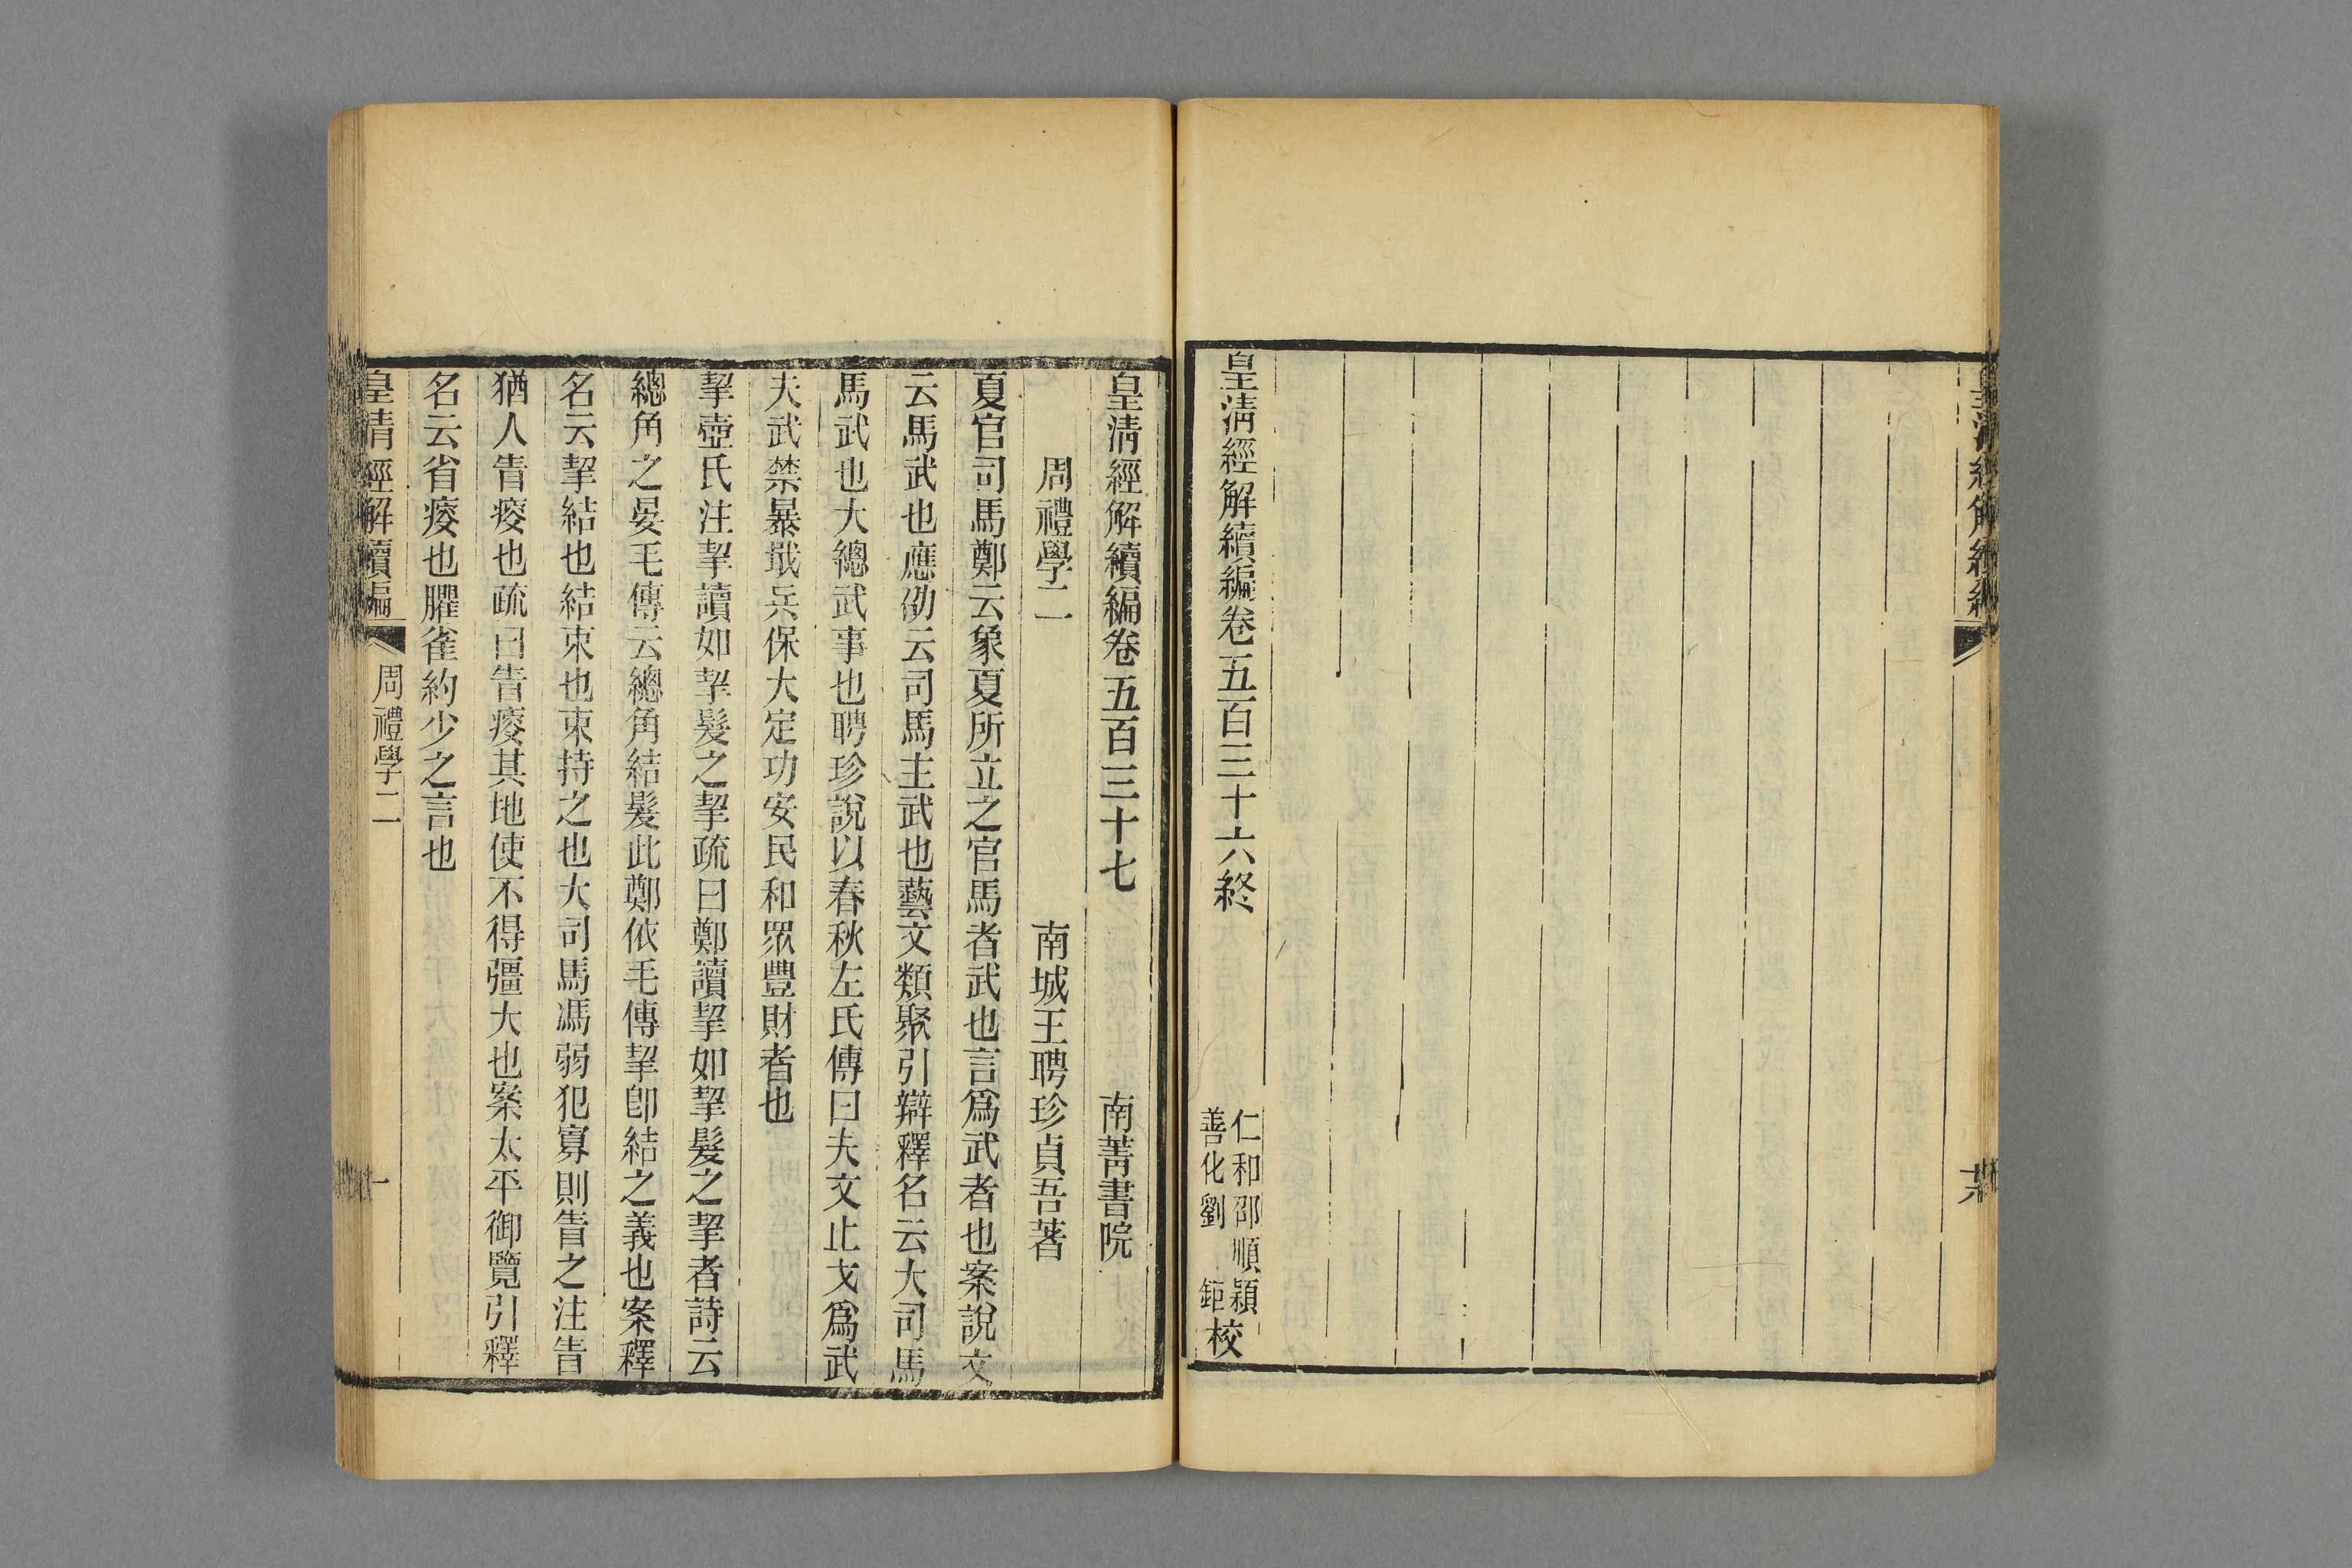 皇清經解續編
皇清經解續編卷五百三十六終
仁和邵順穎
善化劉　鉅校
皇清經解續編卷五百三十七　南菁書院
周禮學二　南城王聘珍貞吾著
夏官司馬鄭云象夏所立之官馬者武也言爲武者也案說文
云馬武也應劭云司馬主武也藝文類聚引辯釋名云大司馬
馬武也大總武事也聘珍說以春秋左氏傳曰夫文止戈爲武
夫武禁暴戢兵保大定功安民和眾豐財者也
挈壺氏注挈讀如挈髮之挈疏曰鄭讀挈如挈髮之挈者詩云
總角之晏毛傳云總角結髮此鄭依毛傳挈卽結之義也案釋
名云挈結也結束也束持之也大司馬馮弱犯寡則眚之注眚
猶人眚瘦也疏曰眚瘦其地使不得彊大也案太平御覽引釋
名云省瘦也臞雀約少之言也
皇清經解續編　周禮學二　一